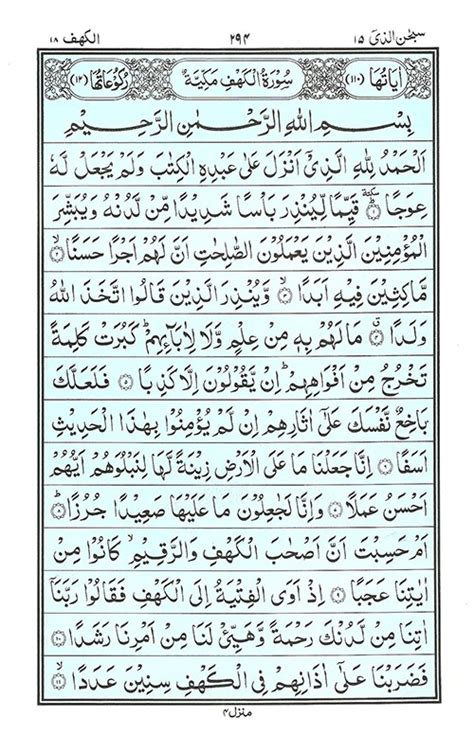 سبحن الذی ۱۵ ۲۹۴ الكهف ۱۸
اٰیَاتُهَا (۱۱۰) سُوْرَةُ الْكَهْفِ مَكِّیَّةٌ رُكُوْعَاتُهَا (۱۲)
بِسْمِ اللّٰهِ الرَّحْمٰنِ الرَّحِیْمِ
اَلْحَمْدُ لِلّٰهِ الَّذِیْۤ اَنْزَلَ عَلٰی عَبْدِهِ الْكِتٰبَ وَلَمْ یَجْعَلْ لَّهٗ
عِوَجًا ۱ سكتة قَیِّمًا لِّیُنْذِرَ بَاْسًا شَدِیْدًا مِّنْ لَّدُنْهُ وَیُبَشِّرَ
الْمُؤْمِنِیْنَ الَّذِیْنَ یَعْمَلُوْنَ الصّٰلِحٰتِ اَنَّ لَهُمْ اَجْرًا حَسَنًا ۲ۙ
مَّاكِثِیْنَ فِیْهِ اَبَدًا ۳ۙ وَّیُنْذِرَ الَّذِیْنَ قَالُوا اتَّخَذَ اللّٰهُ
وَلَدًا ۴ۗ مَا لَهُمْ بِهٖ مِنْ عِلْمٍ وَّلَا لِاٰبَآئِهِمْؕ كَبُرَتْ كَلِمَةً
تَخْرُجُ مِنْ اَفْوَاهِهِمْؕ اِنْ یَّقُوْلُوْنَ اِلَّا كَذِبًا ۵ فَلَعَلَّكَ
بَاخِعٌ نَّفْسَكَ عَلٰۤی اٰثَارِهِمْ اِنْ لَّمْ یُؤْمِنُوْا بِهٰذَا الْحَدِیْثِ
اَسَفًا ۶ اِنَّا جَعَلْنَا مَا عَلَی الْاَرْضِ زِیْنَةً لَّهَا لِنَبْلُوَهُمْ اَیُّهُمْ
اَحْسَنُ عَمَلًا ۷ وَاِنَّا لَجٰعِلُوْنَ مَا عَلَیْهَا صَعِیْدًا جُرُزًا ۸ؕ
اَمْ حَسِبْتَ اَنَّ اَصْحٰبَ الْكَهْفِ وَالرَّقِیْمِۙ كَانُوْا مِنْ
اٰیٰتِنَا عَجَبًا ۹ اِذْ اَوَی الْفِتْیَةُ اِلَی الْكَهْفِ فَقَالُوْا رَبَّنَاۤ
اٰتِنَا مِنْ لَّدُنْكَ رَحْمَةً وَّهَیِّئْ لَنَا مِنْ اَمْرِنَا رَشَدًا ۱۰
فَضَرَبْنَا عَلٰۤی اٰذَانِهِمْ فِی الْكَهْفِ سِنِیْنَ عَدَدًا ۱۱ۙ
منزل ۴